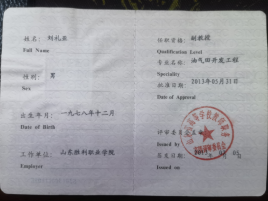 姓名: 刘礼
Full Name
性别: 男
Sex
出生年月: 一九七八年十二月
Date of Birth
工作单位: 山东胜利职业学院
Employer
任职资格: 副教授
Qualification Level
专业名称: 油气田开发工程
Speciality
批准日期: 2013年05月31日
Date of Approval
评审委员
Issued by
签发日期:
Issued on